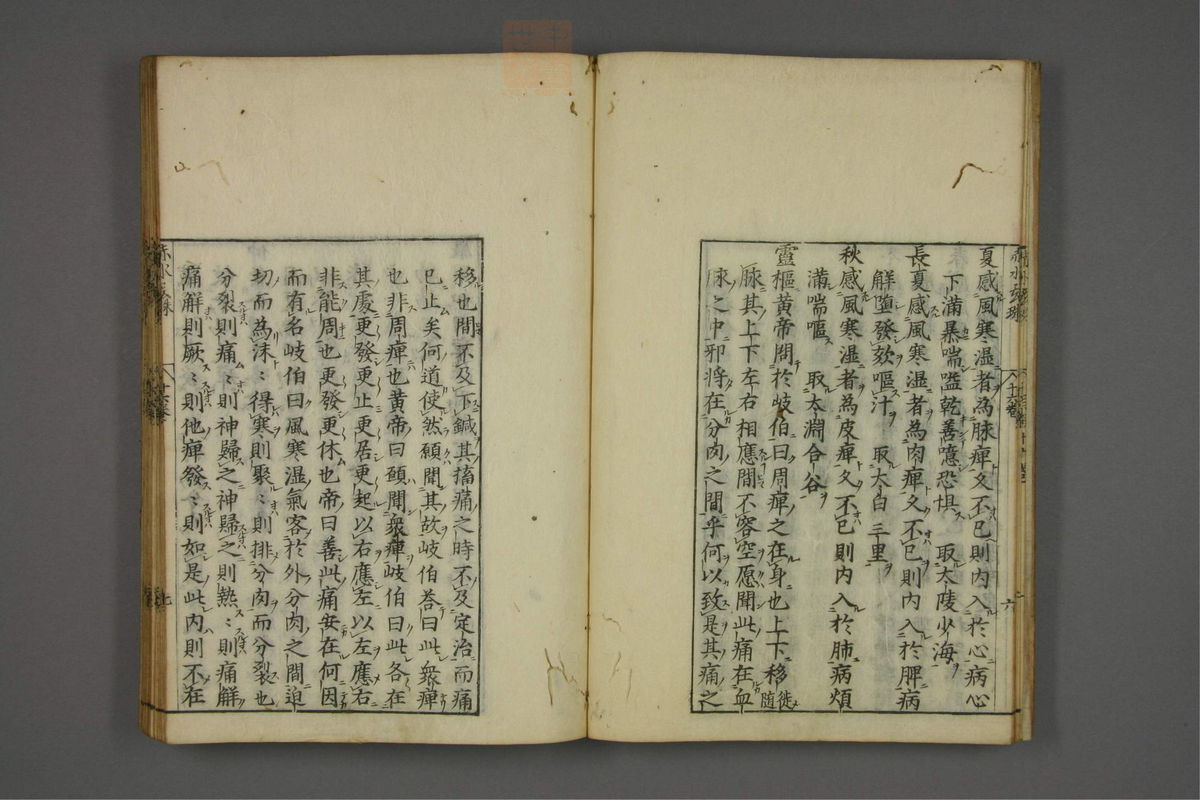 夏感風寒濕者為脉痺久不已則内入於心病心
下滿暴喘嗌乾善噫恐惧 取太陵少海
長夏感風寒濕者為肉痺久不已則内入於脾病
解墮發欬嘔汁 取太白三里
秋感風寒濕者為皮痺久不已則内入於肺病煩
滿喘嘔 取太淵合谷
靈樞黄帝問於岐伯曰周痺之在身也上下移徙随
脉其上下左右相應間不容空愿聞此痛在血
脉之中邪将在分肉之間乎何以致是其痛之
移也間不及下鍼其搐痛之時不及定治而痛
已止矣何道使然願聞其故岐伯荅曰此衆痺
也非周痺也黄帝曰願聞衆痺岐伯曰此各在
其處更發更止更居更起以右應左以左應右
非能周也更發更休也帝曰善此痛安在何因
而有名岐伯曰風寒濕氣客於外分肉之間迫
切而為沫〻得寒則聚〻則排分肉而分裂也
分裂則痛〻則神歸之神歸之則熱〻則痛解
痛解則厥〻則他痺發〻則如是此内則不在